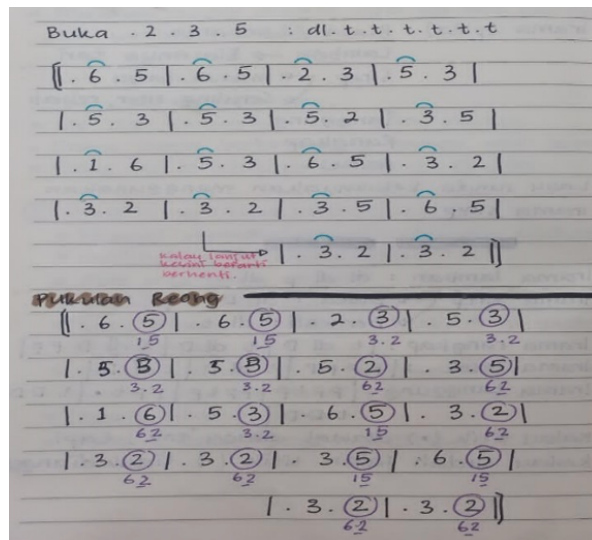 Buka . 2 . 3 . 5 : dl. t. t. t. t. t. t
[| . 6 . 5 | . 6 . 5 | . 2 . 3 | . 5 . 3 |
| . 5 . 3 | . 5 . 3 | . 5 . 2 | . 3 . 5 |
| . 1 . 6 | . 5 . 3 | . 6 . 5 | . 3 . 2 |
| . 3 . 2 | . 3 . 2 | . 3 . 5 | . 6 . 5 |
| . 3 . 2 | . 3 . 2 |]
kalau lanjut
kesini berarti
berhenti.
Pukulan Reong
[| . 6 . 5 | . 6 . 5 | . 2 . 3 | . 5 . 3 |
15 15 3.2 3.2
| . 5 . 3 | . 5 . 3 | . 5 . 2 | . 3 . 5 |
3.2 3.2 62 62
| . 1 . 6 | . 5 . 3 | . 6 . 5 | . 3 . 2 |
62 3.2 15 62
| . 3 . 2 | . 3 . 2 | . 3 . 5 | . 6 . 5 |
62 62 15 15
| . 3 . 2 | . 3 . 2 |]
6.2 62